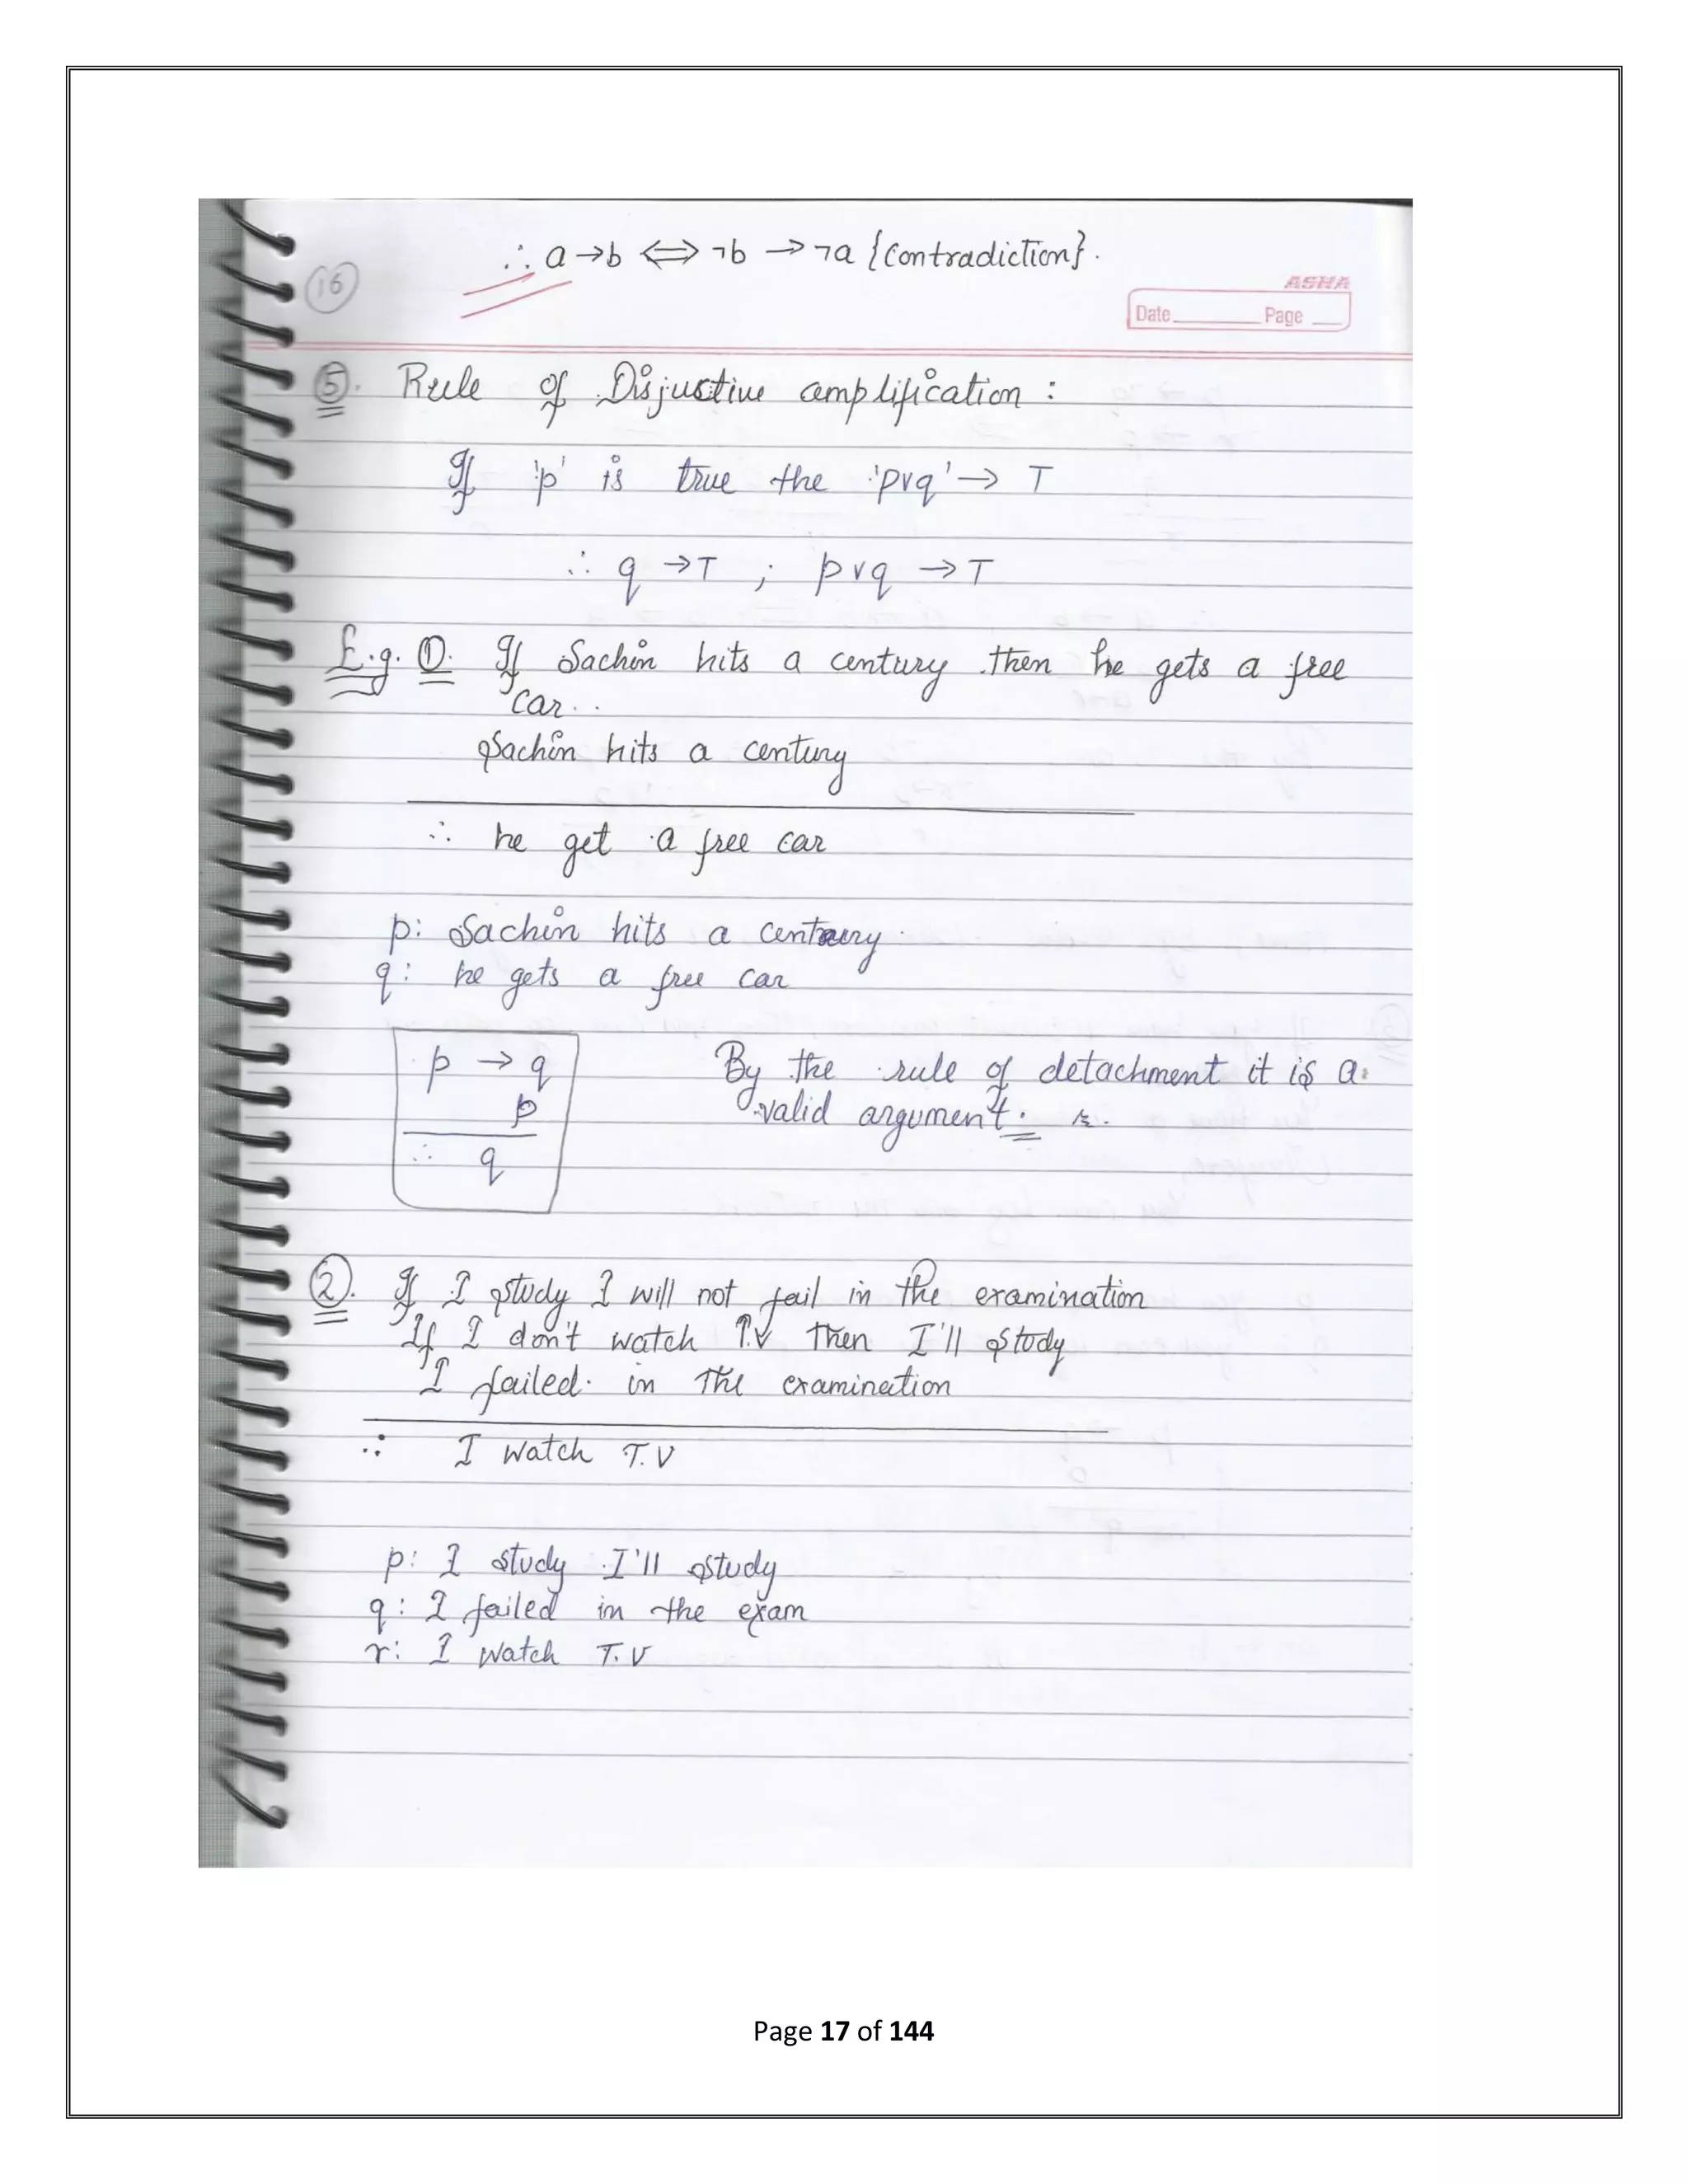 ∴ a → b ⟺ ¬b → ¬a {Contradiction}.
16
ASHA
Date Page
5. Rule of Disjuctive amplification :
If 'p' is true the 'p∨q' → T
∴ q → T ; p∨q → T
E.g. 1. If Sachin hits a century then he gets a free
car..
Sachin hits a century
∴ he get a free car
p: Sachin hits a century.
q: he gets a free car
p → q
p
∴ q
By the rule of detachment it is a
valid argument.
2. If I study I will not fail in the examination
If I don't watch T.V then I'll study
I failed in the examination
∴ I watch T.V
p: I study I'll study
q: I failed in the exam
r: I watch T.V
Page 17 of 144